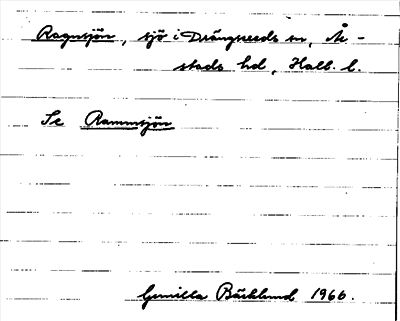 Ragnsjön, sjö i Drängsereds sn, År-
stads hd, Hall. l.
Se Rammsjön
Gunilla Bäcklund 1966.